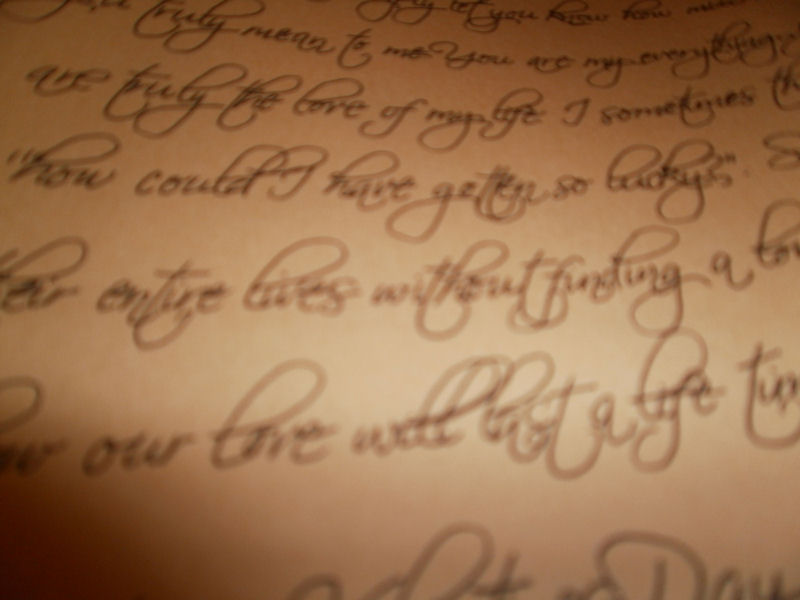 let you know how
truly mean to me. You are my everything.
are truly the love of my life. I sometimes
"how could I have gotten so lucky?"
their entire lives without finding a
our love will last a life
Day